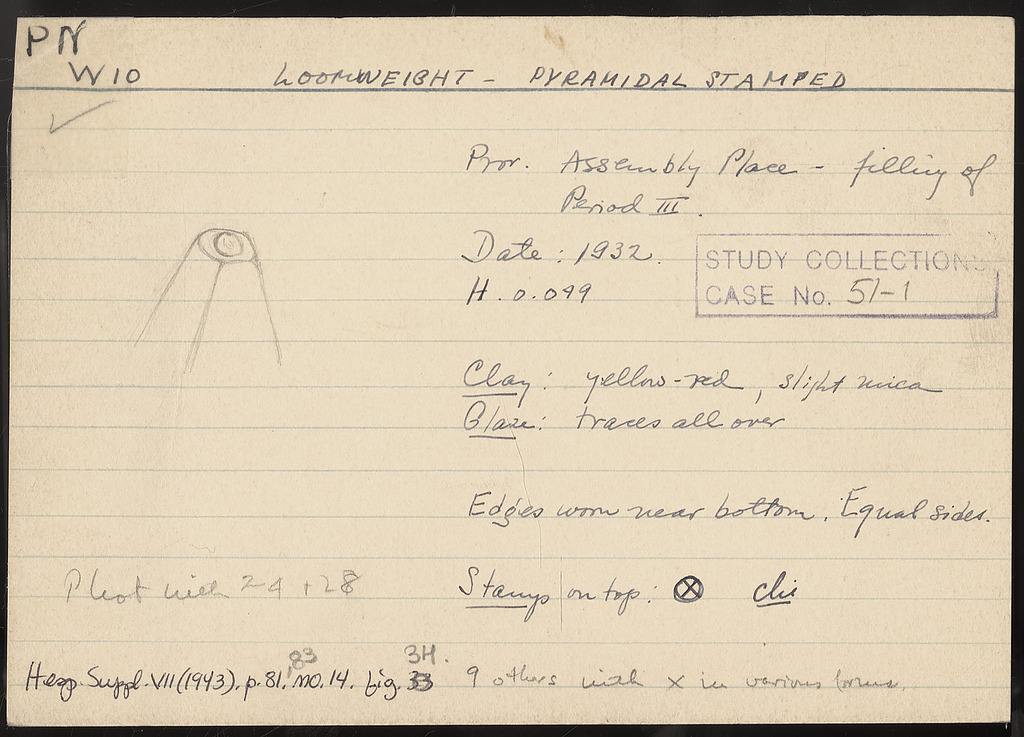 PN
W10
LOOMWEIGHT - PYRAMIDAL STAMPED
Prov. Assembly Place - filling of
Period III.
Date: 1932.
H. 0.099
STUDY COLLECTION
CASE No. 51-1
Clay: yellow-red, slight mica
Glaze: traces all over
Edges worn near bottom. Equal sides.
Phot with 24 + 28
Stamps on top: ⊗ chi
Hesp. Suppl. VII (1943). p. 81, 83 no. 14. fig. 33 34.
9 others with x in various forms.